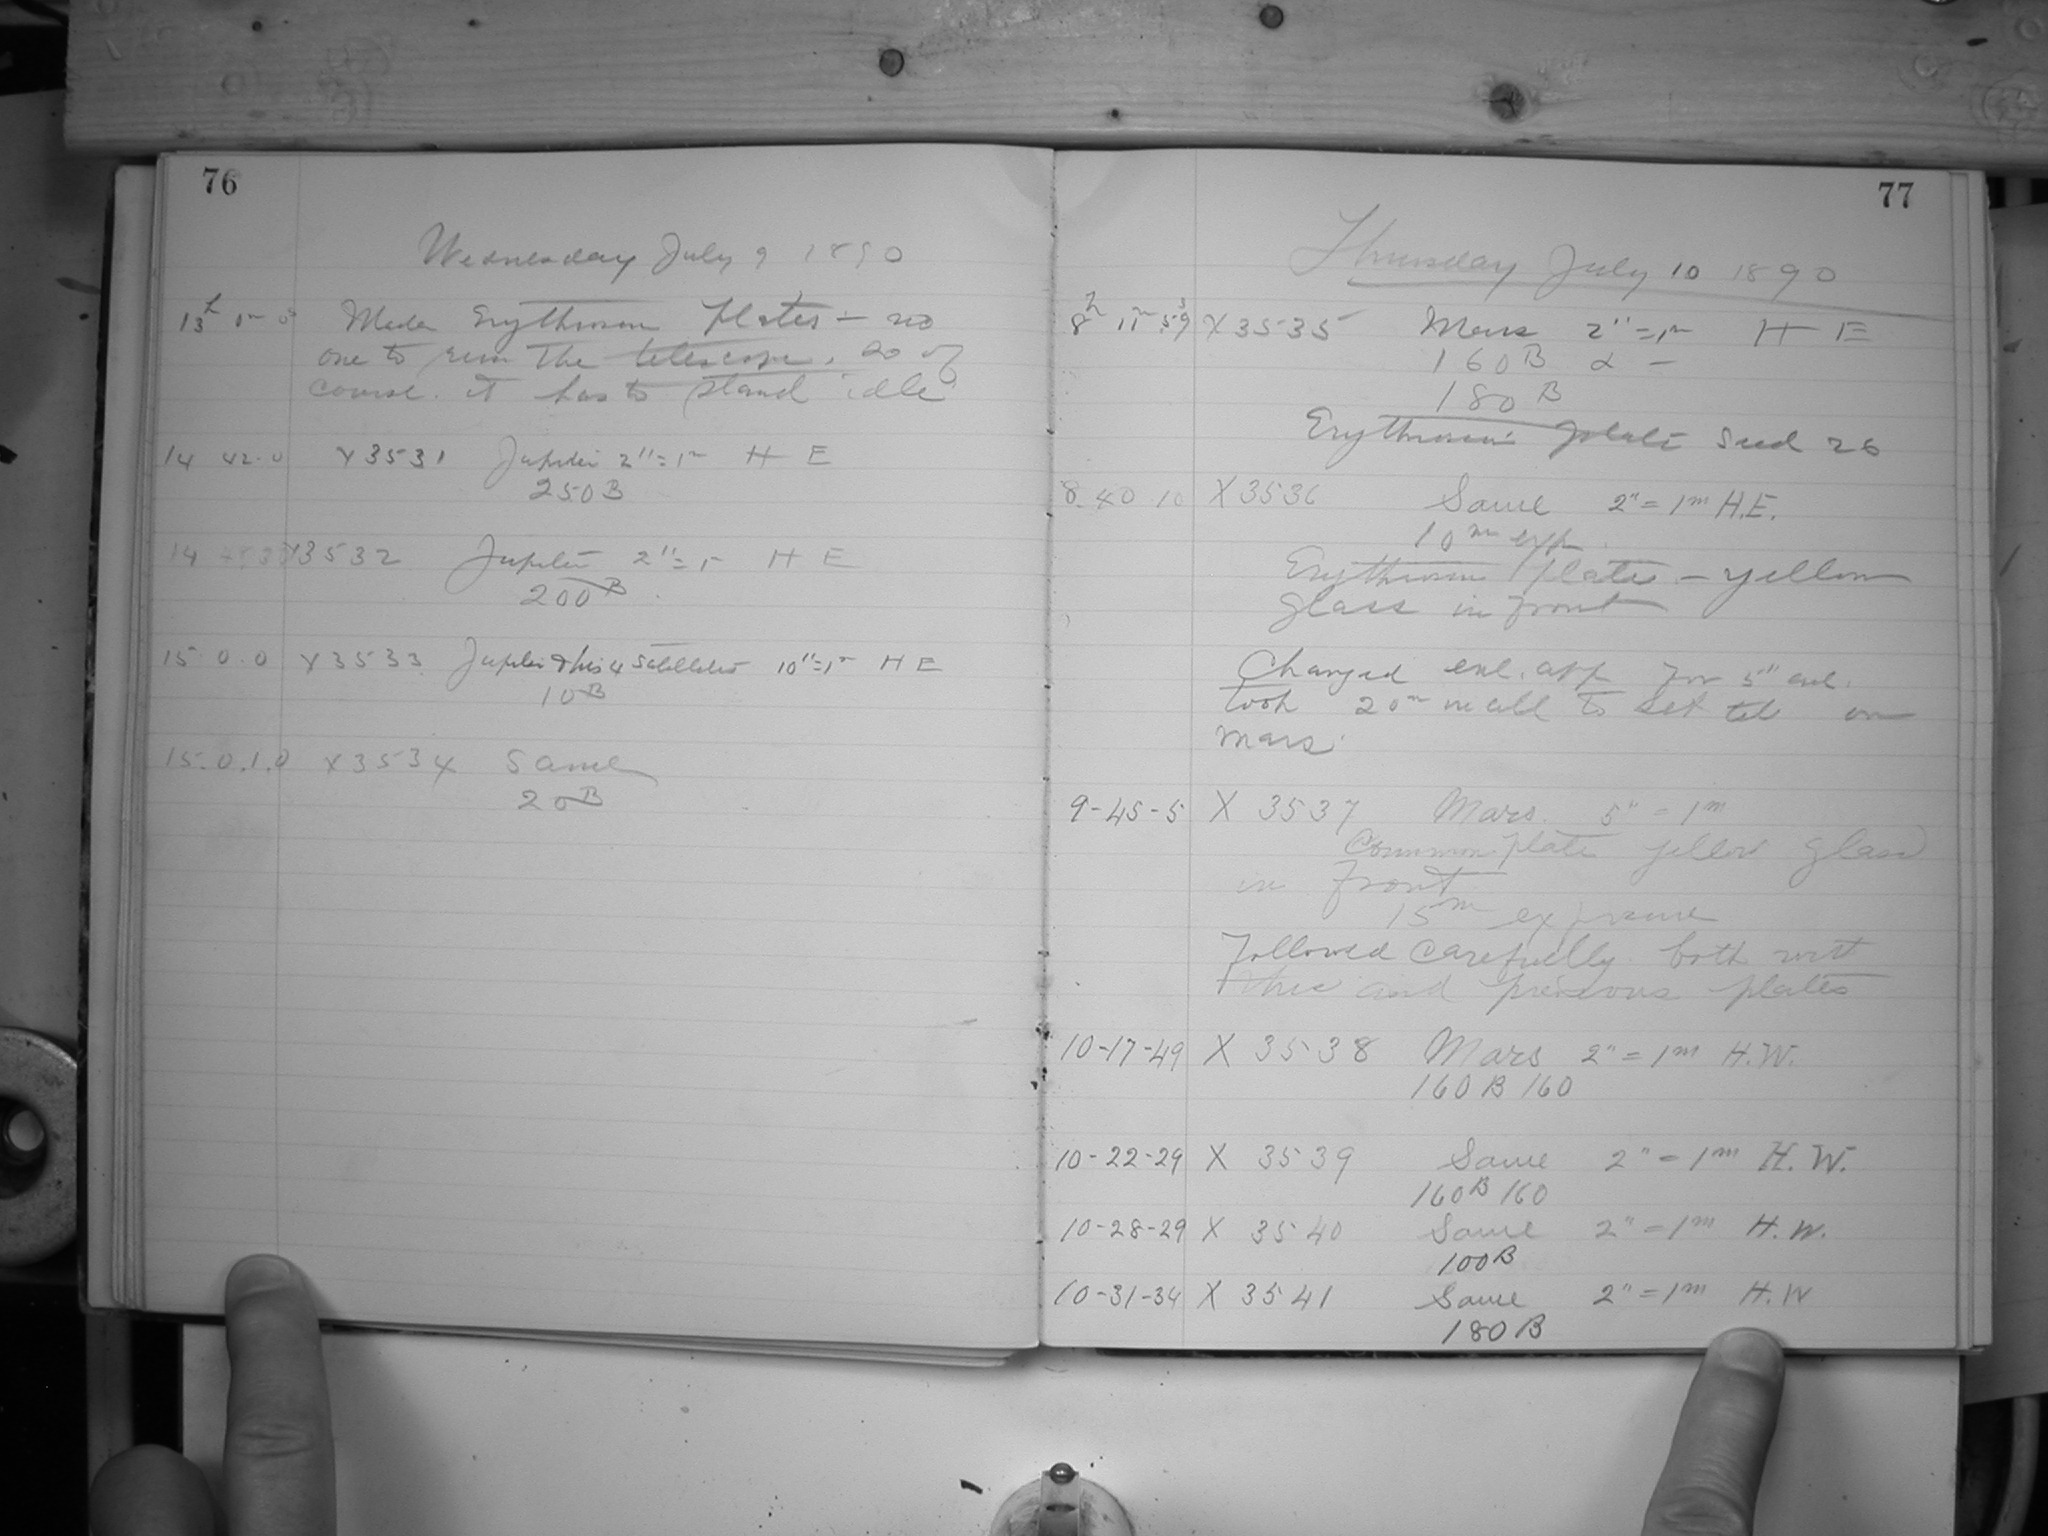 76
Wednesday July 9 1890
13h 0m 0s Made Erythrosin Plates - no
one to run the telescope. So of
course it has to stand idle
14 42.0 X3531 Jupiter 2"=1m H E
250B
14 X3532 Jupiter 2"=1m H E
200B
15 0.0 X3533 Jupiter & his 4 Satellites 10"=1m H E
10B
15.0.1.0 X3534 Same
20B
77
Thursday July 10 1890
8h 11m 59s X3535 Mars 2"=1m H E
160B
180B
Erythrosin plate Seed 26
8.40 10 X3536 Same 2"=1m H.E.
10m exp.
Erythrosin plate - yellow
glass in front
Changed enl. app for 5" enl.
took 20m in all to set tel on
Mars.
9-45-5 X 3537 Mars. 5"=1m
Common plate yellow glass
in front
15m exposure
Followed carefully both with
this and previous plates
10-17-49 X 3538 Mars 2"=1m H.W.
160 B 160
10-22-29 X 3539 Same 2"=1m H.W.
160B 160
10-28-29 X 3540 Same 2"=1m H.W.
100B
10-31-34 X 3541 Same 2"=1m H.W
180B